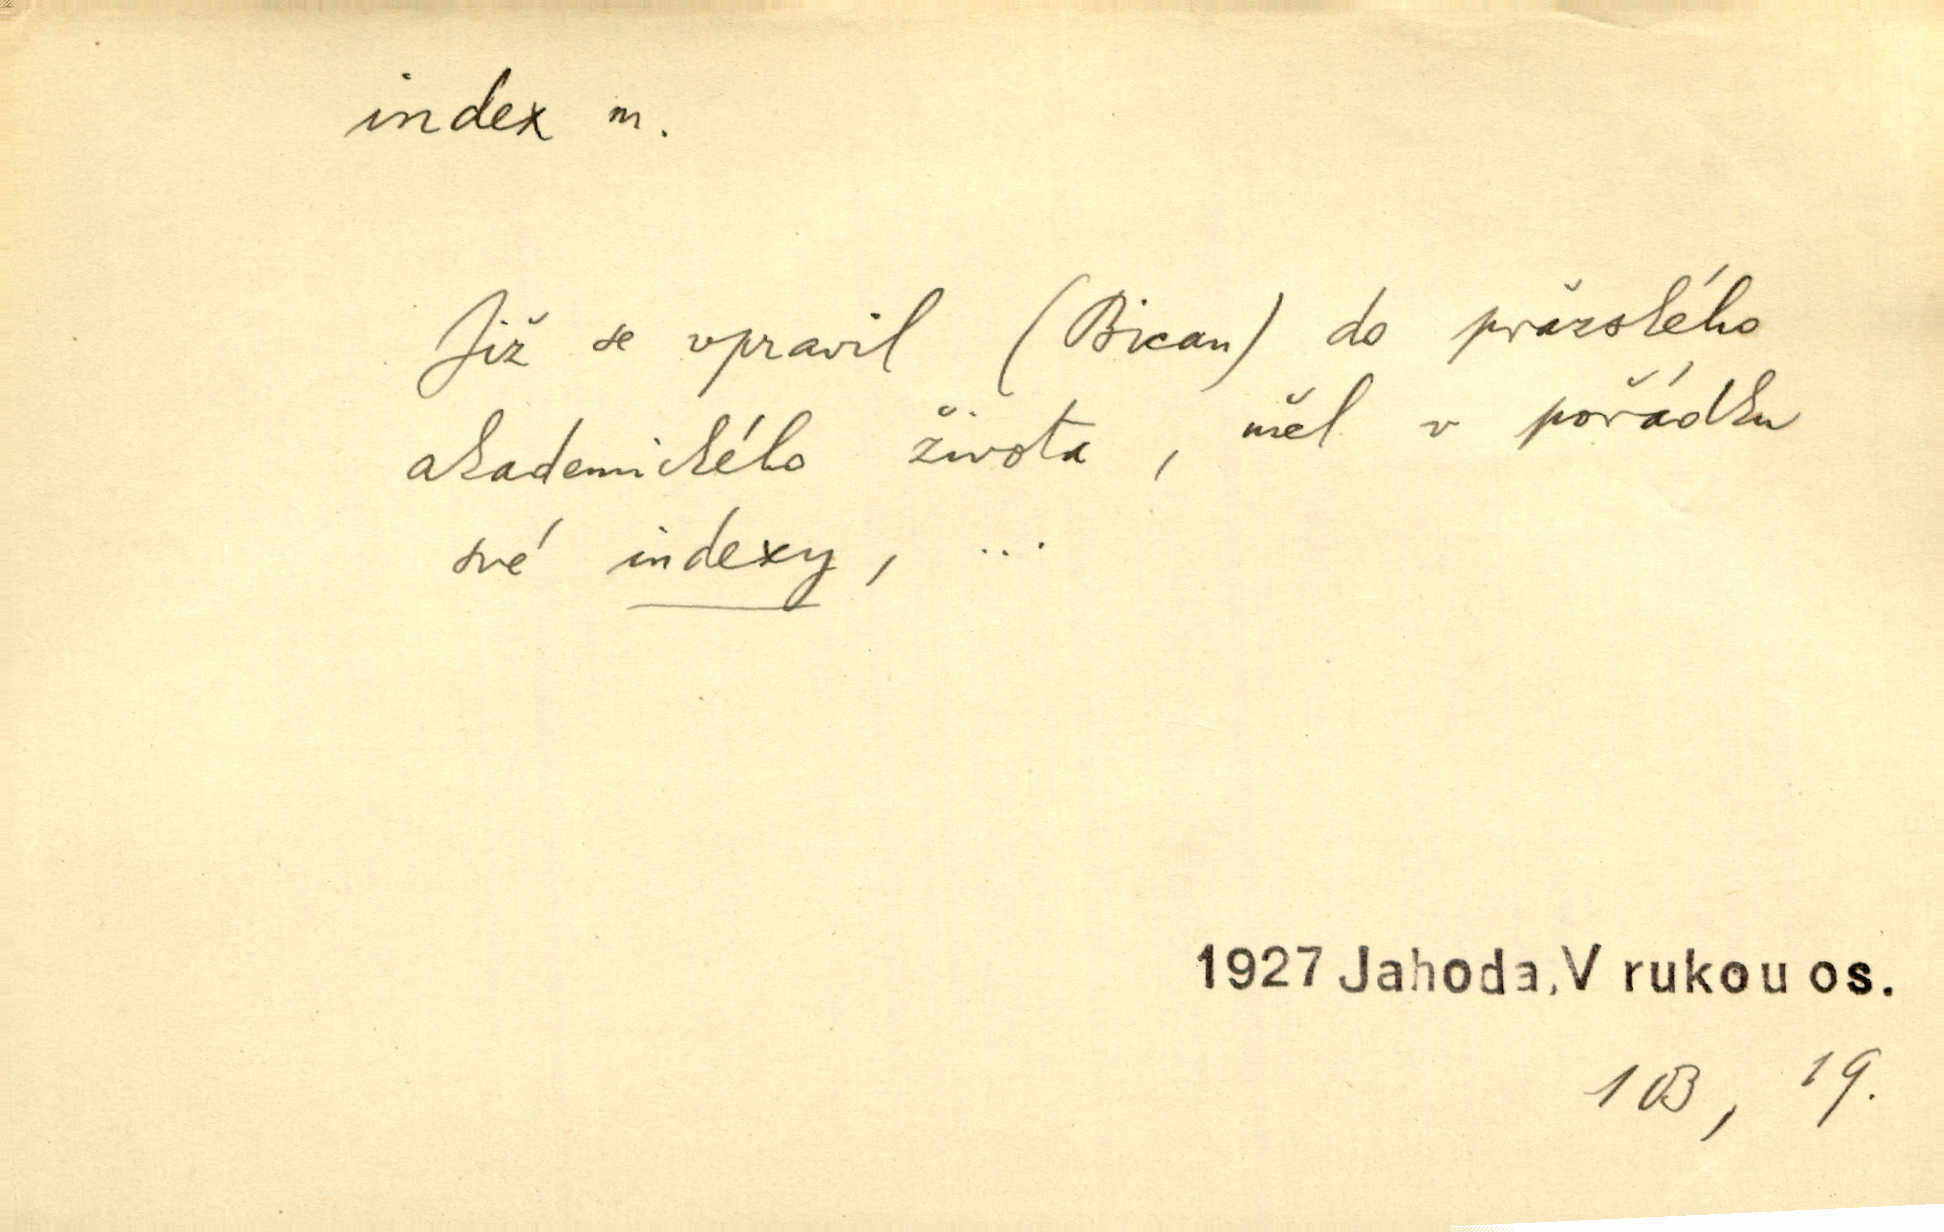 index m.
Již se vpravil (Bican) do pražského
akademického života, měl v pořádku
své indexy, ...
1927 Jahoda, V rukou os.
103, 19.